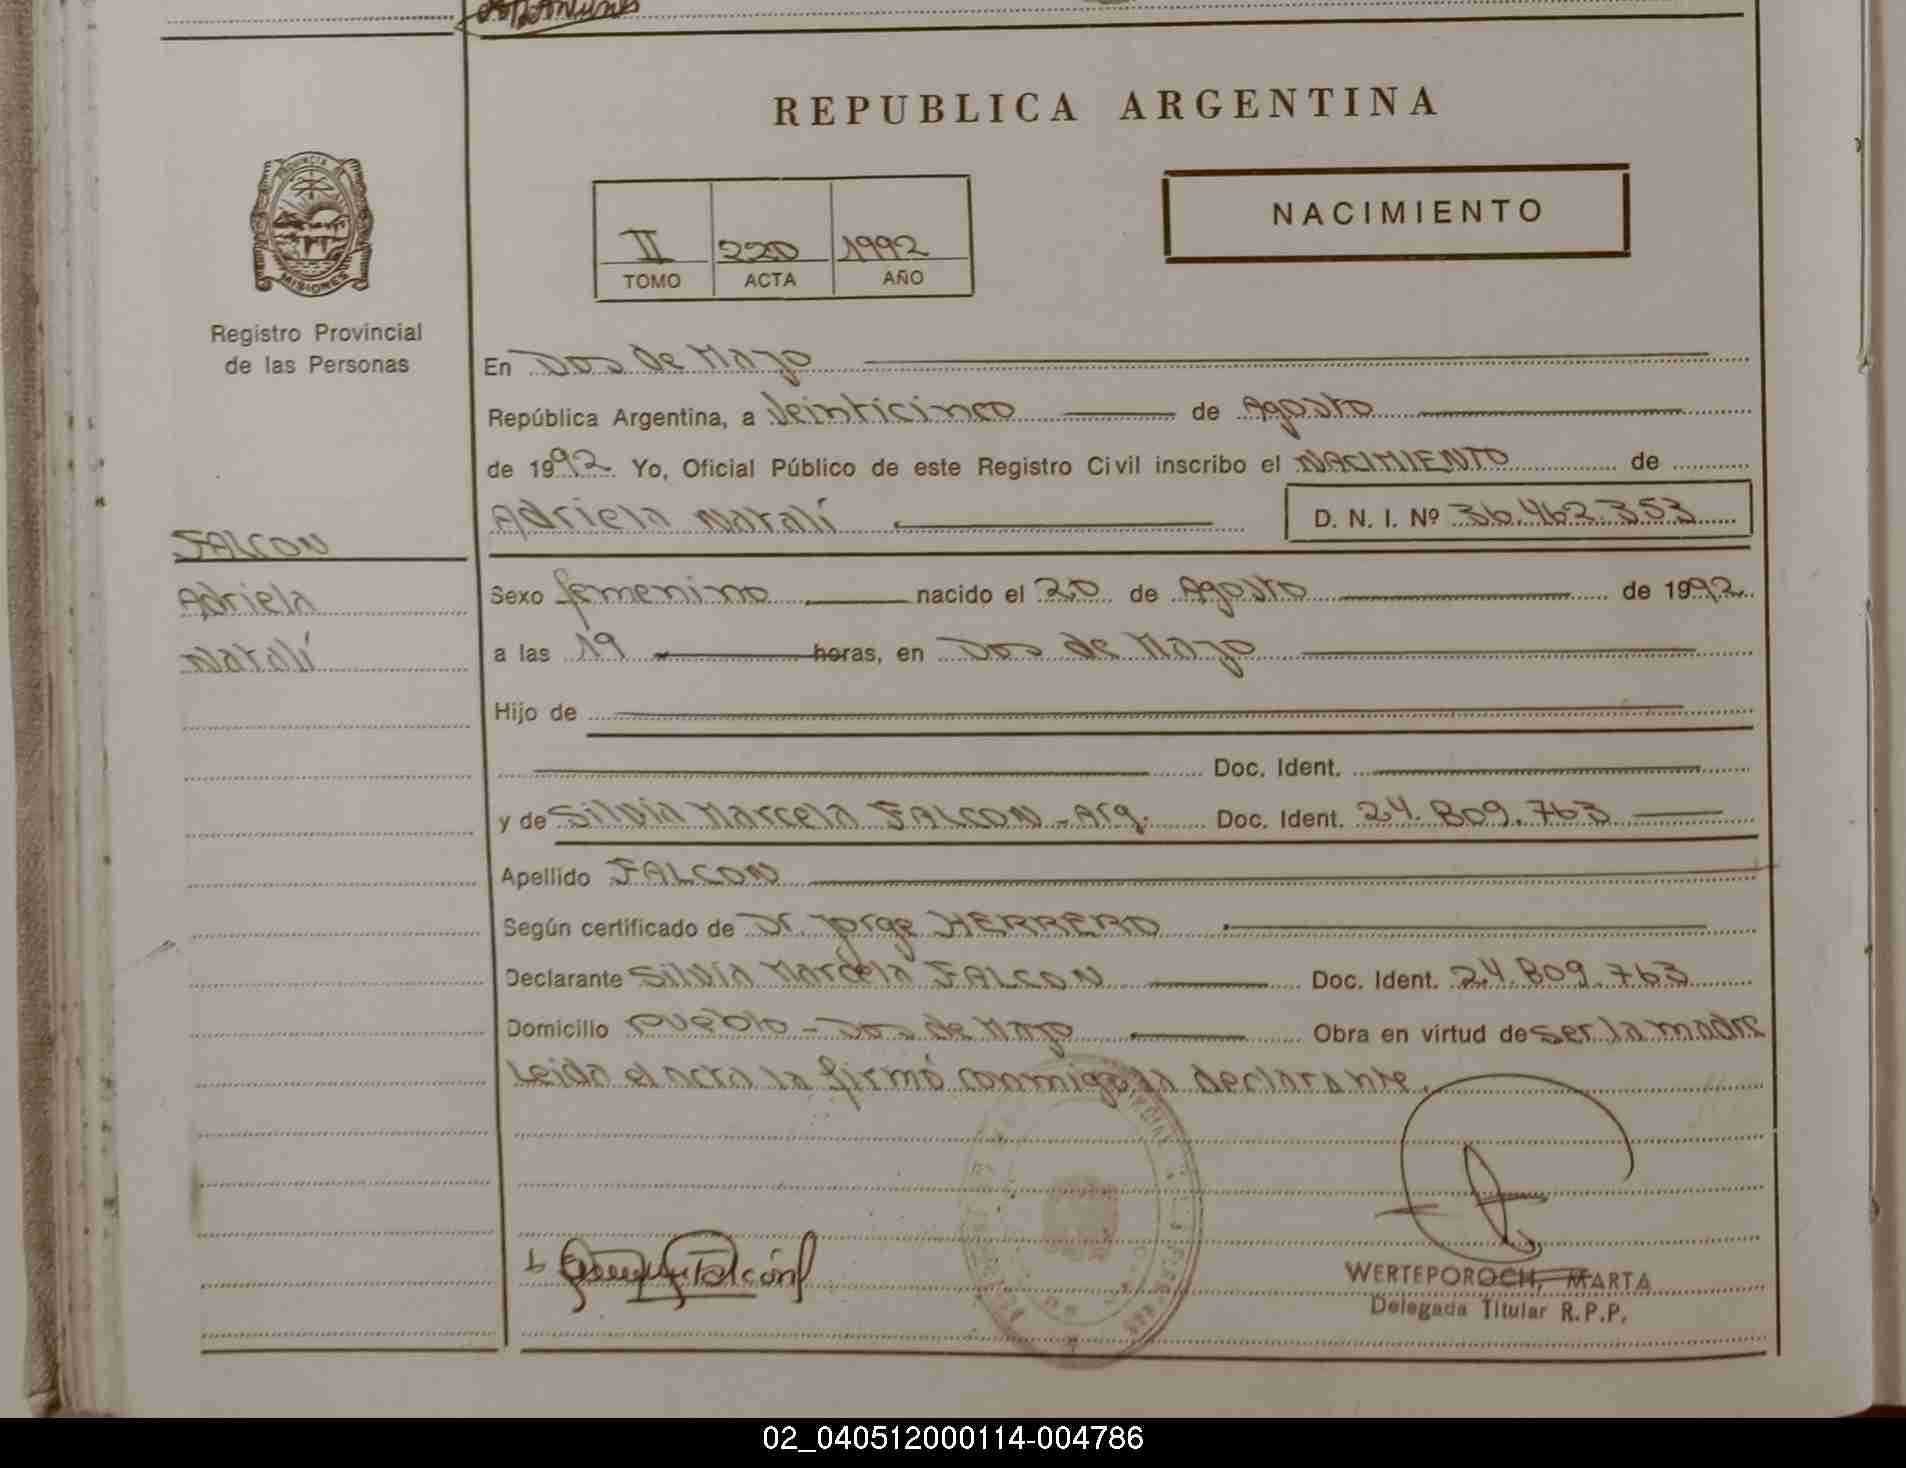 REPUBLICA ARGENTINA
PROVINCIA
MISIONES
Registro Provincial
de las Personas
II 220 1992
TOMO ACTA AÑO
NACIMIENTO
En Dos de Mayo
República Argentina, a Veinticinco de Agosto
de 1992. Yo, Oficial Público de este Registro Civil inscribo el NACIMIENTO de
Adriela Natalí D. N. I. Nº 36.462.353
FALCON
Adriela
Natalí
Sexo femenino nacido el 20 de Agosto de 1992
a las 19 horas, en Dos de Mayo
Hijo de
Doc. Ident.
y de Silvia Marcela FALCON - Arg. Doc. Ident. 24.809.763
Apellido FALCON
Según certificado de Dr. Jorge HERRERO
Declarante Silvia Marcela FALCON Doc. Ident. 24.809.763
Domicilio Pueblo - Dos de Mayo Obra en virtud de ser la madre
Leida el acta la firmó conmigo la declarante.
Falcón
WERTEPOROCH, MARTA
Delegada Titular R.P.P.
02_040512000114-004786